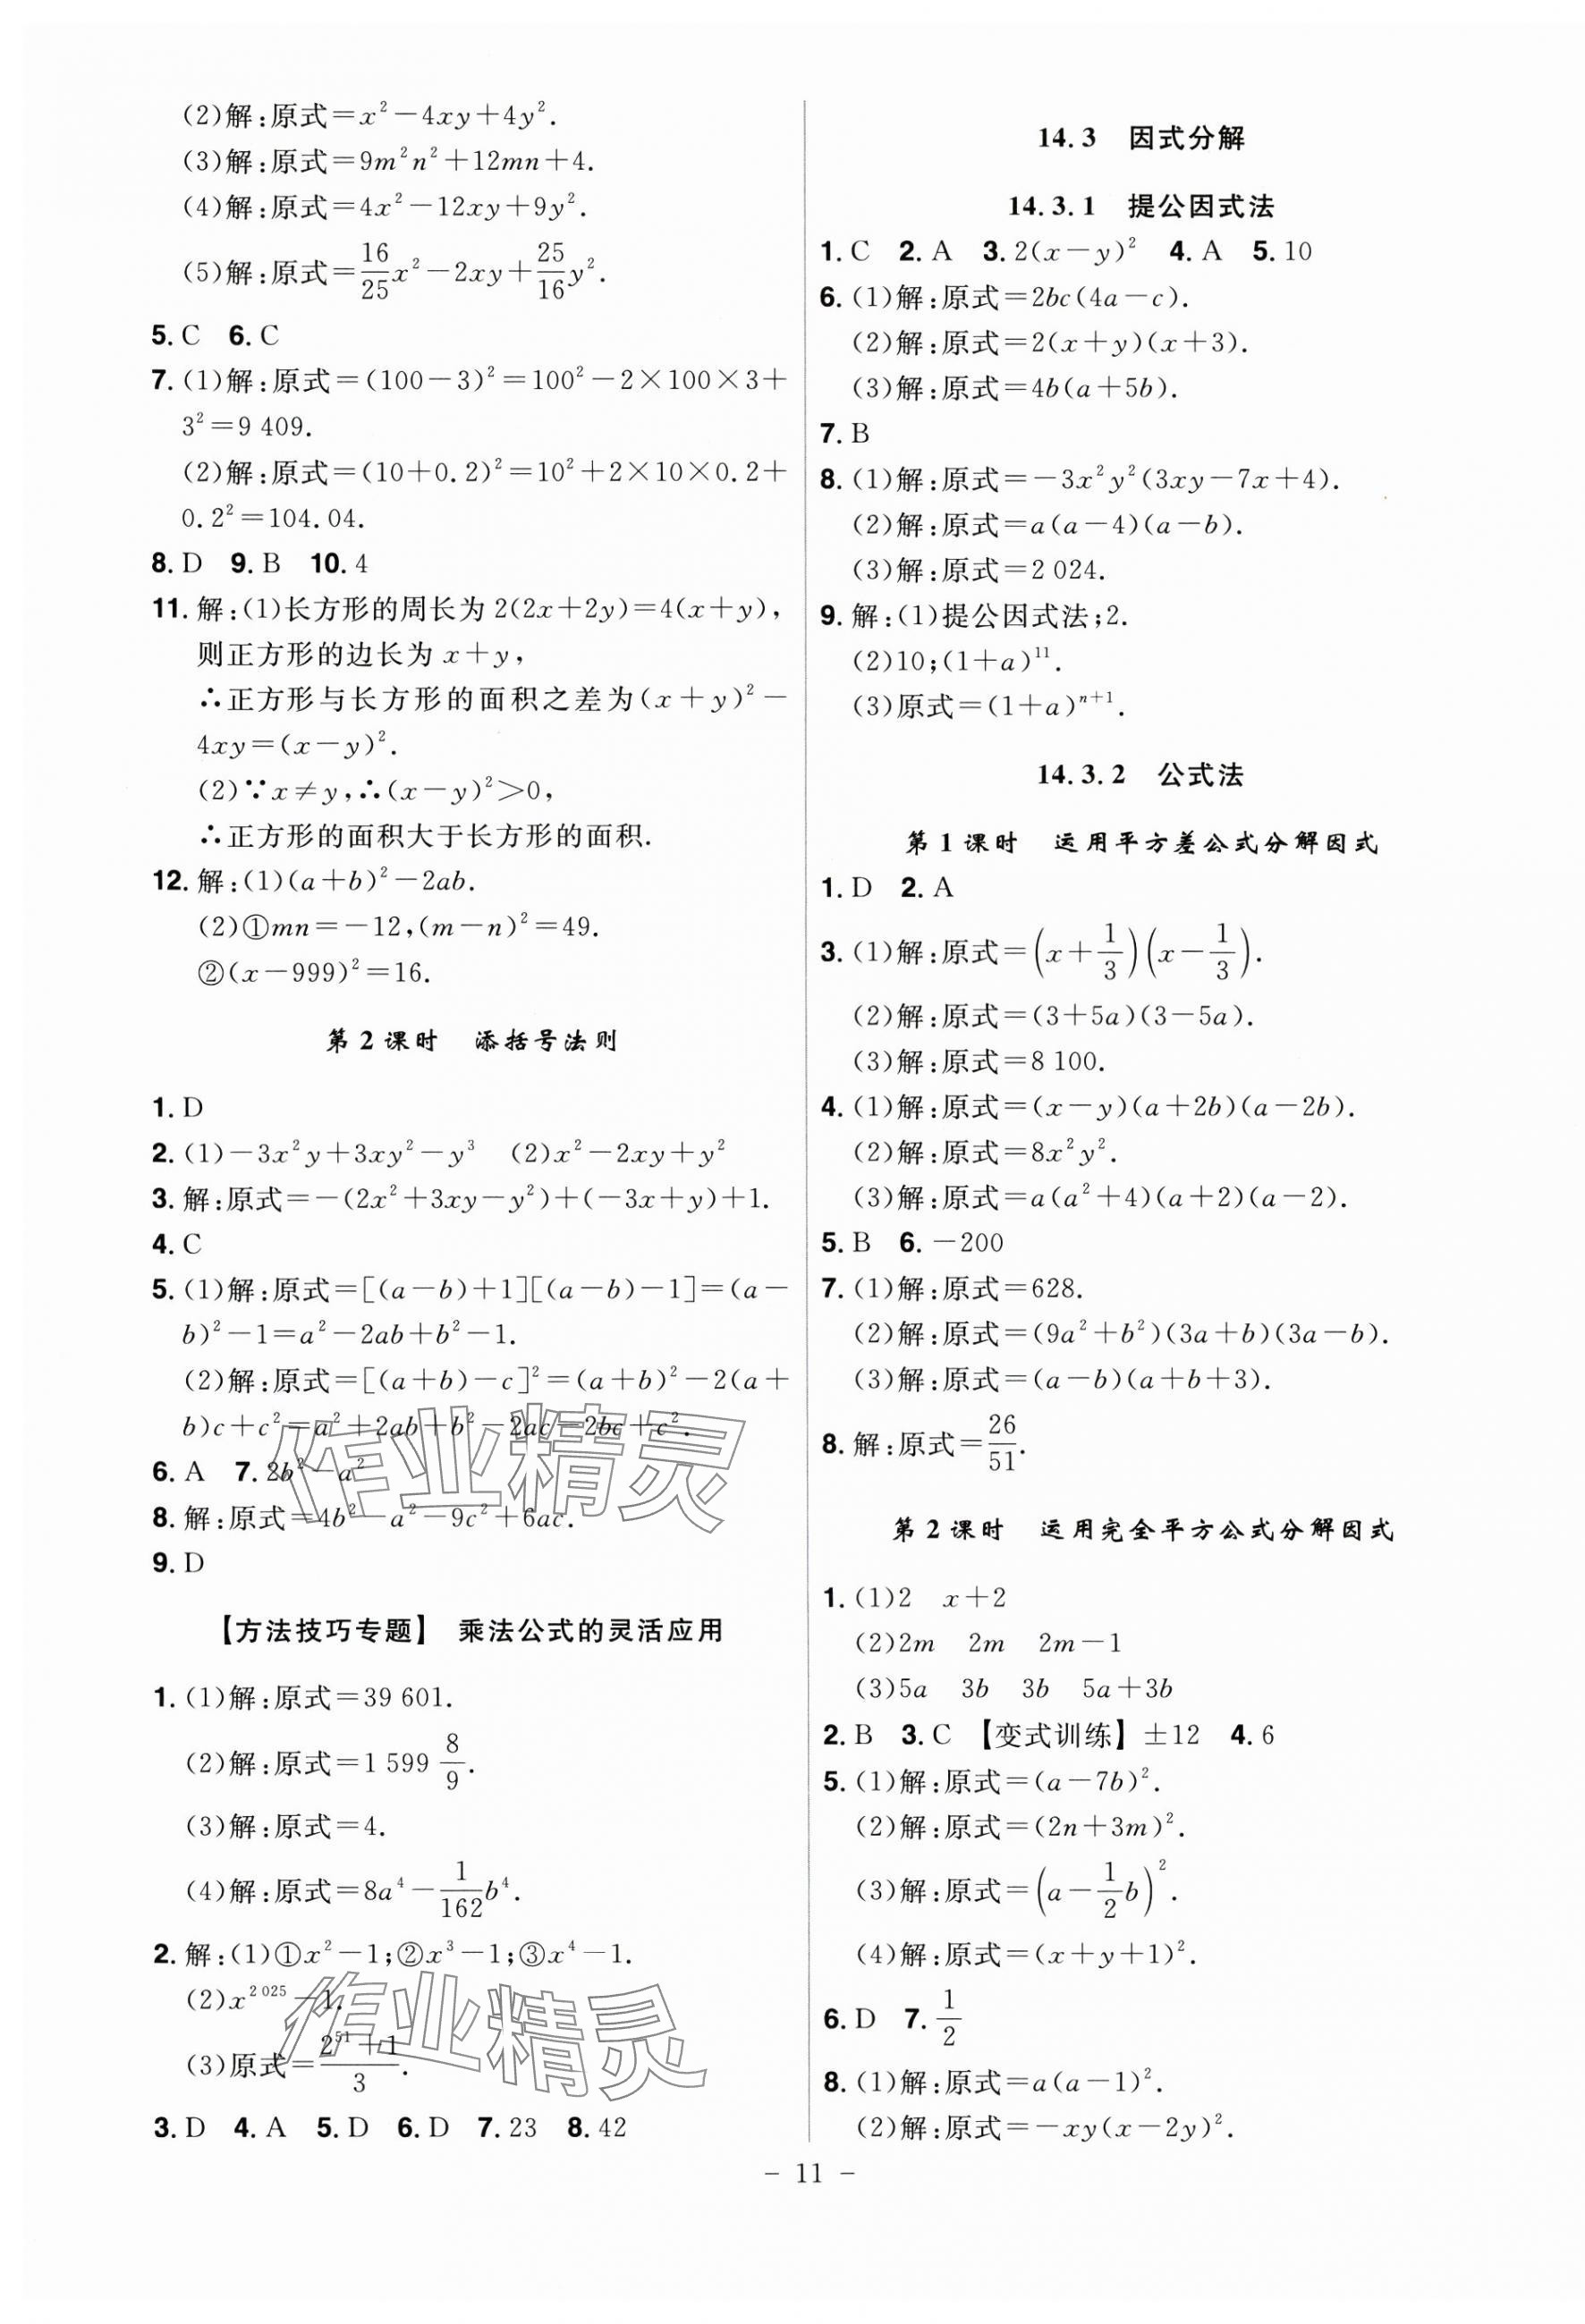 (2)解:原式=x²-4xy+4y².
(3)解:原式=9m²n²+12mn+4.
(4)解:原式=4x²-12xy+9y².
(5)解:原式=16/25x²-2xy+25/16y².
5. C 6. C
7. (1)解:原式=(100-3)²=100²-2×100×3+
3²=9 409.
(2)解:原式=(10+0.2)²=10²+2×10×0.2+
0.2²=104.04.
8. D 9. B 10. 4
11. 解:(1)长方形的周长为 2(2x+2y)=4(x+y),
则正方形的边长为 x+y,
∴正方形与长方形的面积之差为(x+y)²-
4xy=(x-y)².
(2)∵x≠y,∴(x-y)²>0,
∴正方形的面积大于长方形的面积.
12. 解:(1)(a+b)²-2ab.
(2)①mn=-12,(m-n)²=49.
②(x-999)²=16.
第 2 课时 添括号法则
1. D
2. (1)-3x²y+3xy²-y³ (2)x²-2xy+y²
3. 解:原式=-(2x²+3xy-y²)+(-3x+y)+1.
4. C
5. (1)解:原式=[(a-b)+1][(a-b)-1]=(a-
b)²-1=a²-2ab+b²-1.
(2)解:原式=[(a+b)-c]²=(a+b)²-2(a+
b)c+c²=a²+2ab+b²-2ac-2bc+c².
6. A 7. 2b²-a²
8. 解:原式=4b²-a²-9c²+6ac.
9. D
【方法技巧专题】 乘法公式的灵活应用
1. (1)解:原式=39 601.
(2)解:原式=1 599 8/9.
(3)解:原式=4.
(4)解:原式=8a⁴-1/162b⁴.
2. 解:(1)①x²-1;②x³-1;③x⁴-1.
(2)x²⁰²⁵-1.
(3)原式=(2⁵¹+1)/3.
3. D 4. A 5. D 6. D 7. 23 8. 42
14.3 因式分解
14.3.1 提公因式法
1. C 2. A 3. 2(x-y)² 4. A 5. 10
6. (1)解:原式=2bc(4a-c).
(2)解:原式=2(x+y)(x+3).
(3)解:原式=4b(a+5b).
7. B
8. (1)解:原式=-3x²y²(3xy-7x+4).
(2)解:原式=a(a-4)(a-b).
(3)解:原式=2 024.
9. 解:(1)提公因式法;2.
(2)10;(1+a)¹¹.
(3)原式=(1+a)ⁿ⁺¹.
14.3.2 公式法
第 1 课时 运用平方差公式分解因式
1. D 2. A
3. (1)解:原式=(x+1/3)(x-1/3).
(2)解:原式=(3+5a)(3-5a).
(3)解:原式=8 100.
4. (1)解:原式=(x-y)(a+2b)(a-2b).
(2)解:原式=8x²y².
(3)解:原式=a(a²+4)(a+2)(a-2).
5. B 6. -200
7. (1)解:原式=628.
(2)解:原式=(9a²+b²)(3a+b)(3a-b).
(3)解:原式=(a-b)(a+b+3).
8. 解:原式=26/51.
第 2 课时 运用完全平方公式分解因式
1. (1)2 x+2
(2)2m 2m 2m-1
(3)5a 3b 3b 5a+3b
2. B 3. C 【变式训练】±12 4. 6
5. (1)解:原式=(a-7b)².
(2)解:原式=(2n+3m)².
(3)解:原式=(a-1/2b)².
(4)解:原式=(x+y+1)².
6. D 7. 1/2
8. (1)解:原式=a(a-1)².
(2)解:原式=-xy(x-2y)².
- 11 -
作业精灵
作业精灵